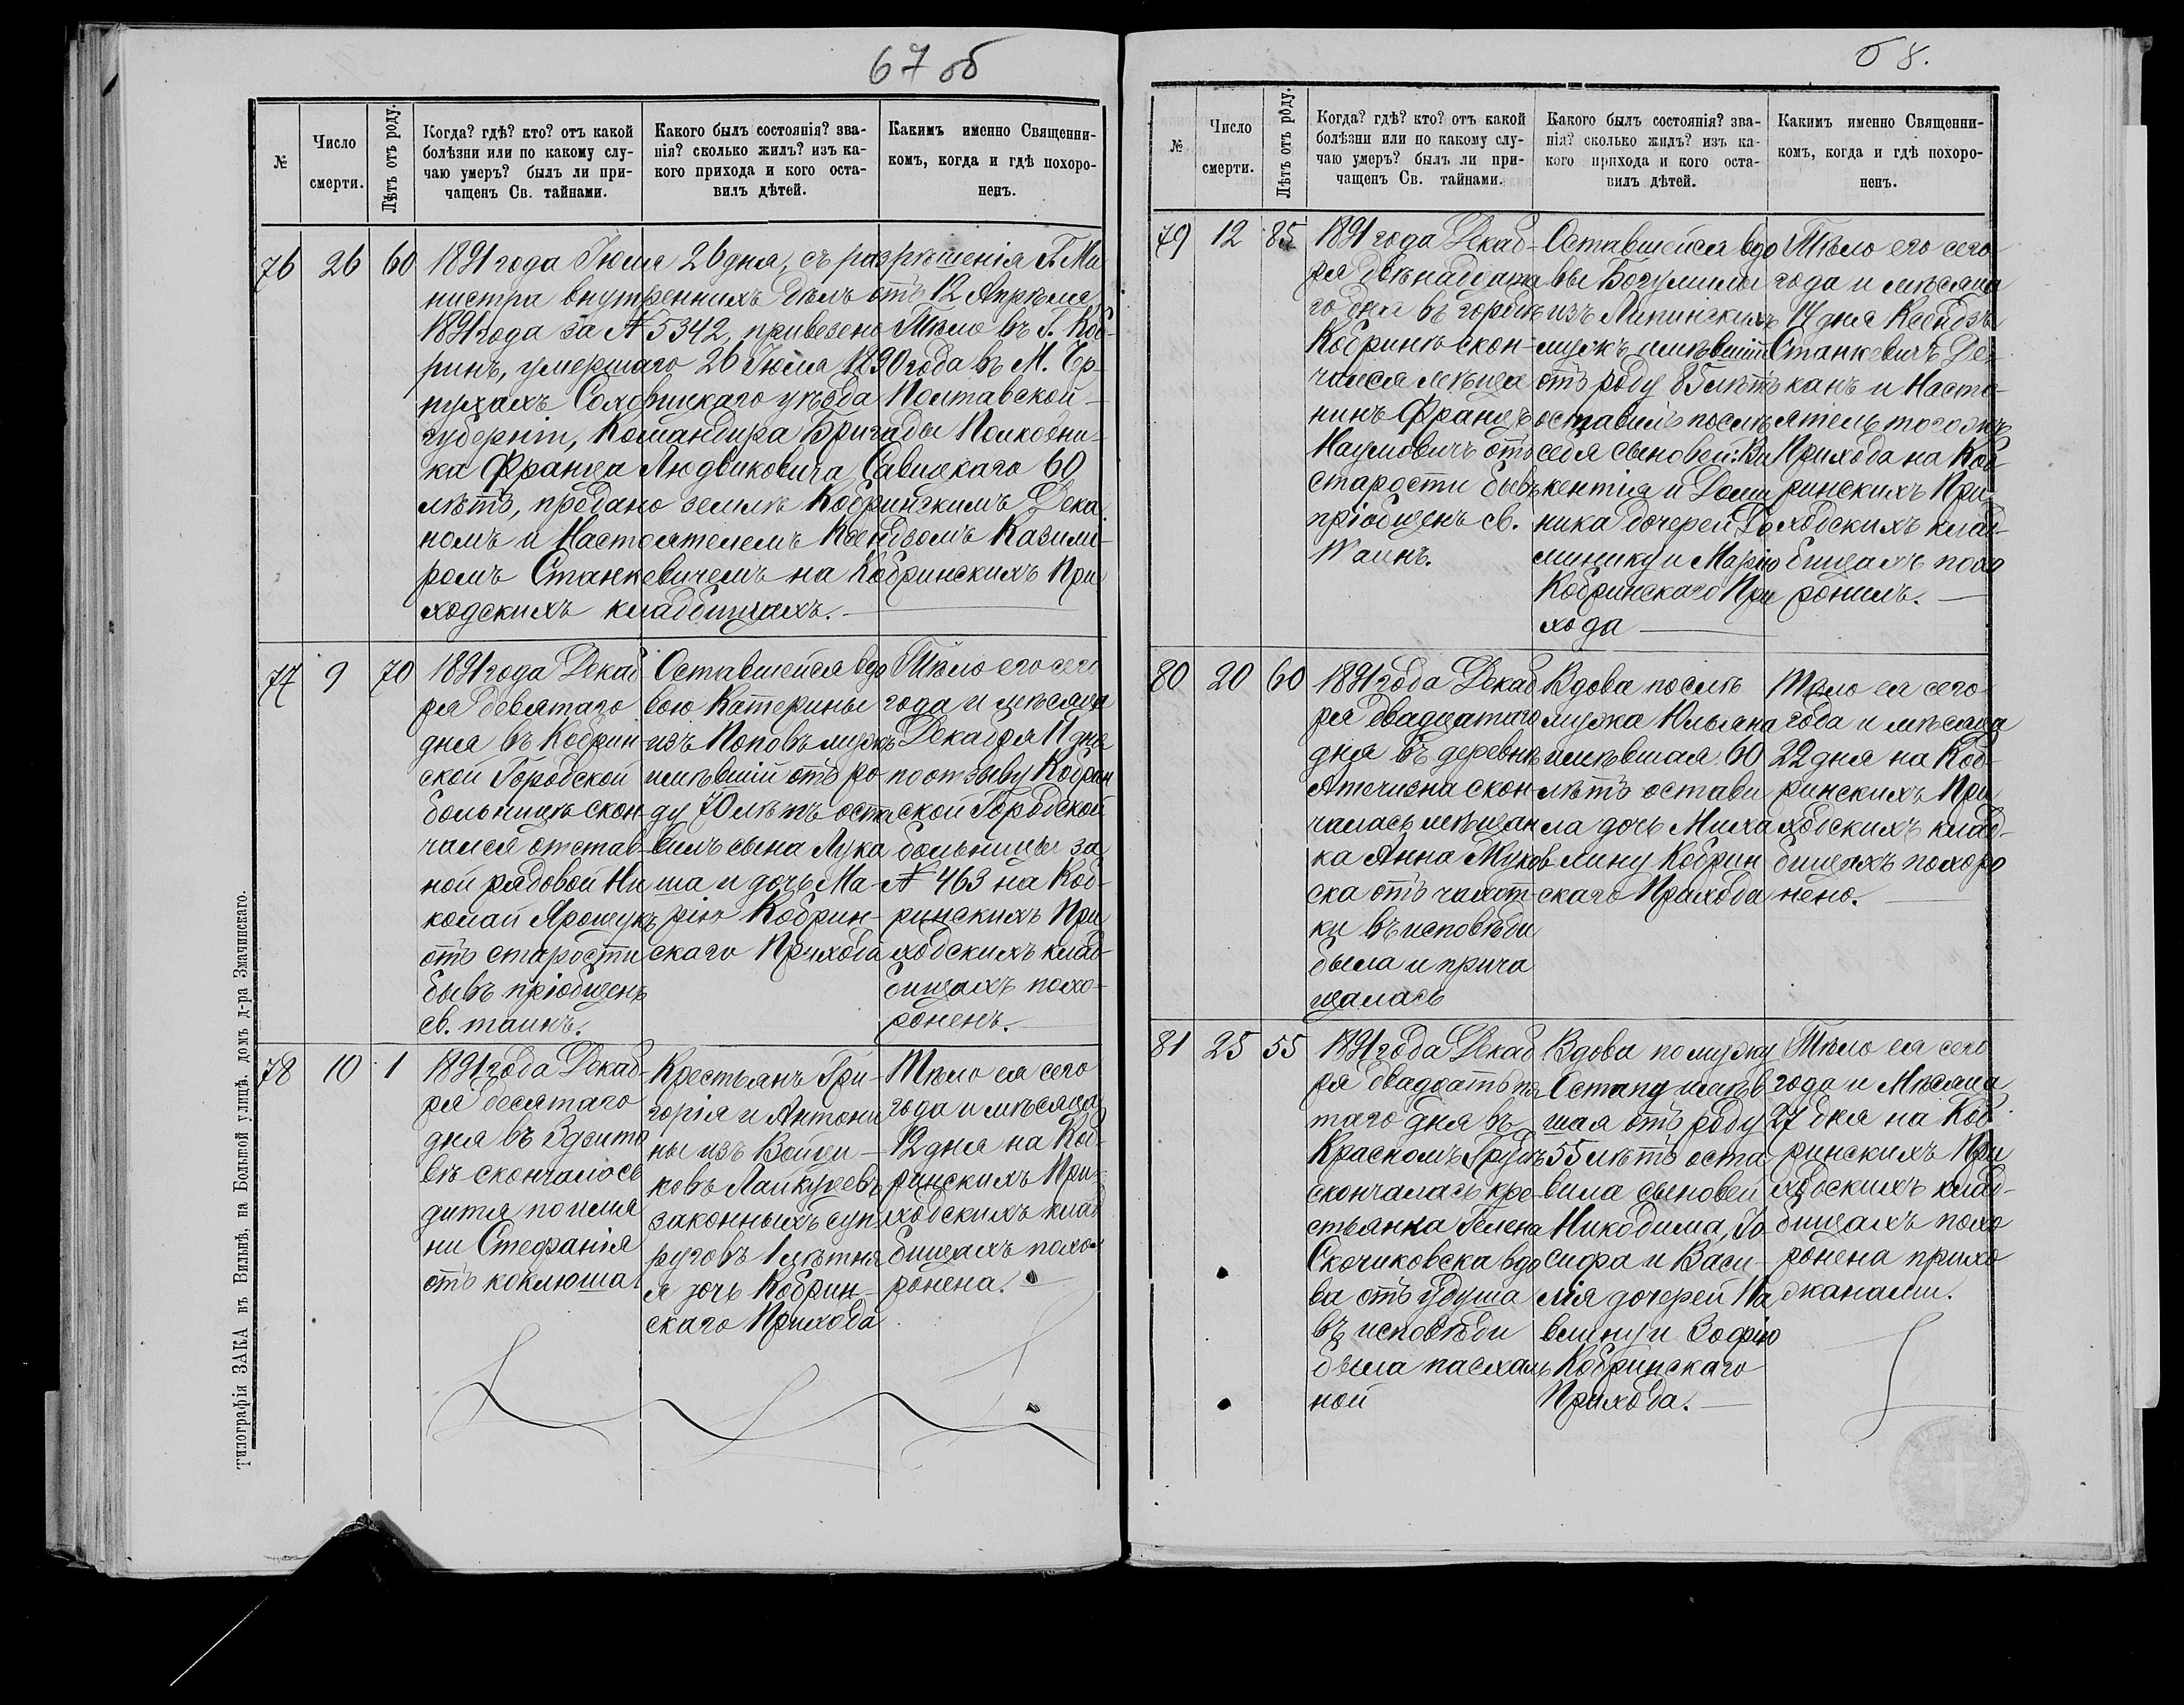 67 об
№
Число
смерти.
Лѣтъ отъ роду.
Когда? гдѣ? кто? отъ какой
болѣзни или по какому слу-
чаю умеръ? былъ ли при-
чащенъ Св. тайнами.
Какого былъ состоянія? зва-
нія? сколько жилъ? изъ ка-
кого прихода и кого оста-
вилъ дѣтей.
Какимъ именно Священни-
комъ, когда и гдѣ похоро-
ненъ.
76 26 60
1891 года Іюля 26 дня, съ разрѣшенія Г. Ми
нистра внутреннихъ дѣлъ отъ 12 Апрѣля
1891 года за № 5342, привезено Тѣло въ Г. Коб-
ринъ, умершаго 26 Іюля 1890 года въ М.
уѣзда Полтавской
губерніи, Командира Бригады Полковни-
ка Франца Людвиковича Савицкаго 60
лѣтъ, предано землѣ Кобринскимъ Дека
номъ и Настоятелемъ Ксендзомъ Казими-
ромъ Станкевичемъ на Кобринскихъ При
ходскихъ кладбищахъ.
77 9 70
1891 года Декаб
ря девятаго
дня въ Кобрин-
ской Городской
больницѣ скон-
чался отстав-
ной рядовой Ни
колай Ярошукъ
отъ старости
бывъ пріобщенъ
св. таинъ.
Оставшейся вдо
вою Катерины
изъ Поповъ мужъ
имѣвшій отъ ро
ду 70 лѣтъ оста
вилъ сына Лука
ша и дочь Ма-
рію Кобрин-
скаго Прихода
Тѣло его сего
года и мѣсяца
Декабря 11 дня
по отзыву Кобрин
ской Городской
больницы за
№ 463 на Коб-
ринскихъ При
ходскихъ клад-
бищахъ похо-
роненъ.
78 10 1
1891 года Декаб-
ря десятаго
дня въ Здито
вѣ скончалось
дитя по име
ни Стефанія
отъ коклюша.
Крестьянъ Гри-
горія и Антони
ны изъ Войци-
ковъ
законныхъ суп
руговъ 1 лѣтня
я дочь Кобрин-
скаго Прихода
Тѣло ея сего
года и мѣсяца
12 дня на Коб-
ринскихъ При-
ходскихъ клад
бищахъ похо-
ронена.
Типографія ЗАКА въ Вильнѣ, на Большой улицѣ, домъ д-ра Змачинскаго.
68.
№
Число
смерти.
Лѣтъ отъ роду.
Когда? гдѣ? кто? отъ какой
болѣзни или по какому слу-
чаю умеръ? былъ ли при-
чащенъ Св. тайнами.
Какого былъ состоянія? зва-
нія? сколько жилъ? изъ ка-
кого прихода и кого оста-
вилъ дѣтей.
Какимъ именно Священни-
комъ, когда и гдѣ похоро-
ненъ.
79 12 85
1891 года Декаб-
ря двѣнадцата
го дня въ городѣ
Кобринѣ скон-
чался мѣща
нинъ Францъ
Наумовичъ отъ
старости бывъ
пріобщенъ св.
Таинъ.
Оставшейся вдо
вы Богумилы
изъ Липинскихъ
мужъ имѣвшій
отъ роду 85 лѣтъ
оставилъ послѣ
себя сыновей: Ви
кентія и Доми
ника дочерей До
минику и Марію
Кобринскаго При
хода
Тѣло его сего
года и мѣсяца
14 дня Ксендзъ
Станкевичъ Де-
канъ и Насто-
ятель тогожъ
Прихода на Коб-
ринскихъ При
ходскихъ клад-
бищахъ похо
ронилъ.
80 20 60
1891 года Декаб
ря двадцатаго
дня въ деревнѣ
скон
чалась мѣщан
ка Анна Жуков
ска отъ чахот-
ки въ исповѣди
была и прича
щалась
Вдова послѣ
мужа Ильяна
имѣвшая 60
лѣтъ остави
ла дочь Миха
лину Кобрин
скаго Прихода
Тѣло ея сего
года и мѣсяца
22 дня на Коб-
ринскихъ При
ходскихъ клад-
бищахъ похоро
нено.
81 25 55
1891 года Декаб
ря двадцать пя
таго дня въ
Красномъ Грудѣ
скончалась кре-
стьянка Гелена
Скочиковска вдо
ва отъ удуша
въ исповѣди
была пасхаль
ной
Вдова по мужу
Остапу имѣв
шая отъ роду
55 лѣтъ оста
вила сыновей
Никодима, Іо-
сифа и Васи-
лія дочерей Па
влину и Зофію
Кобринскаго
Прихода.
Тѣло ея сего
года и Мѣсяца
27 дня на Коб-
ринскихъ При
ходскихъ клад-
бищахъ похо
ронена прихо
жанами.